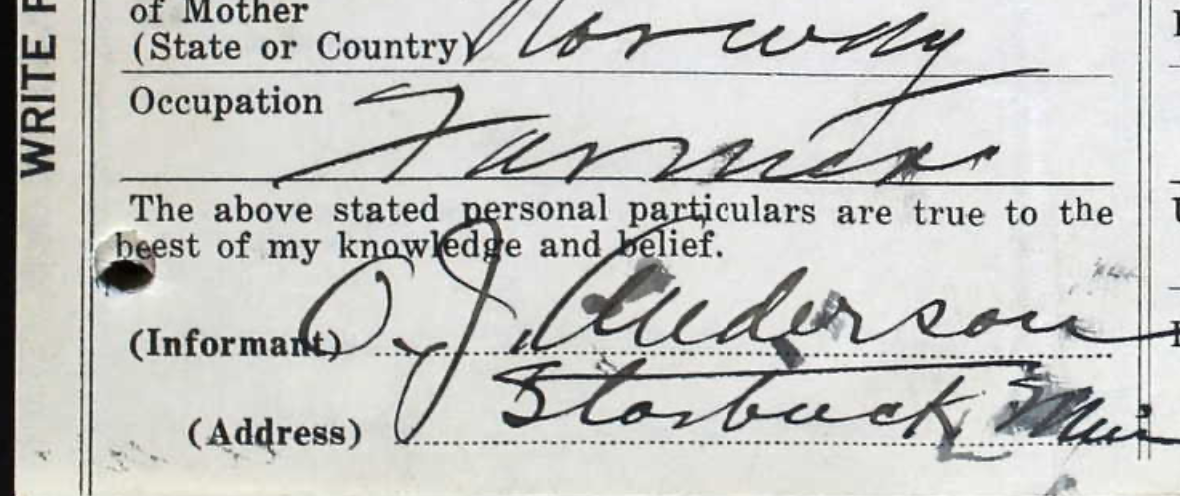 of Mother
(State or Country) Norway
Occupation Farmer
The above stated personal particulars are true to the
beest of my knowledge and belief.
(Informant) O. J. Anderson
(Address) Starbuck Min
WRITE